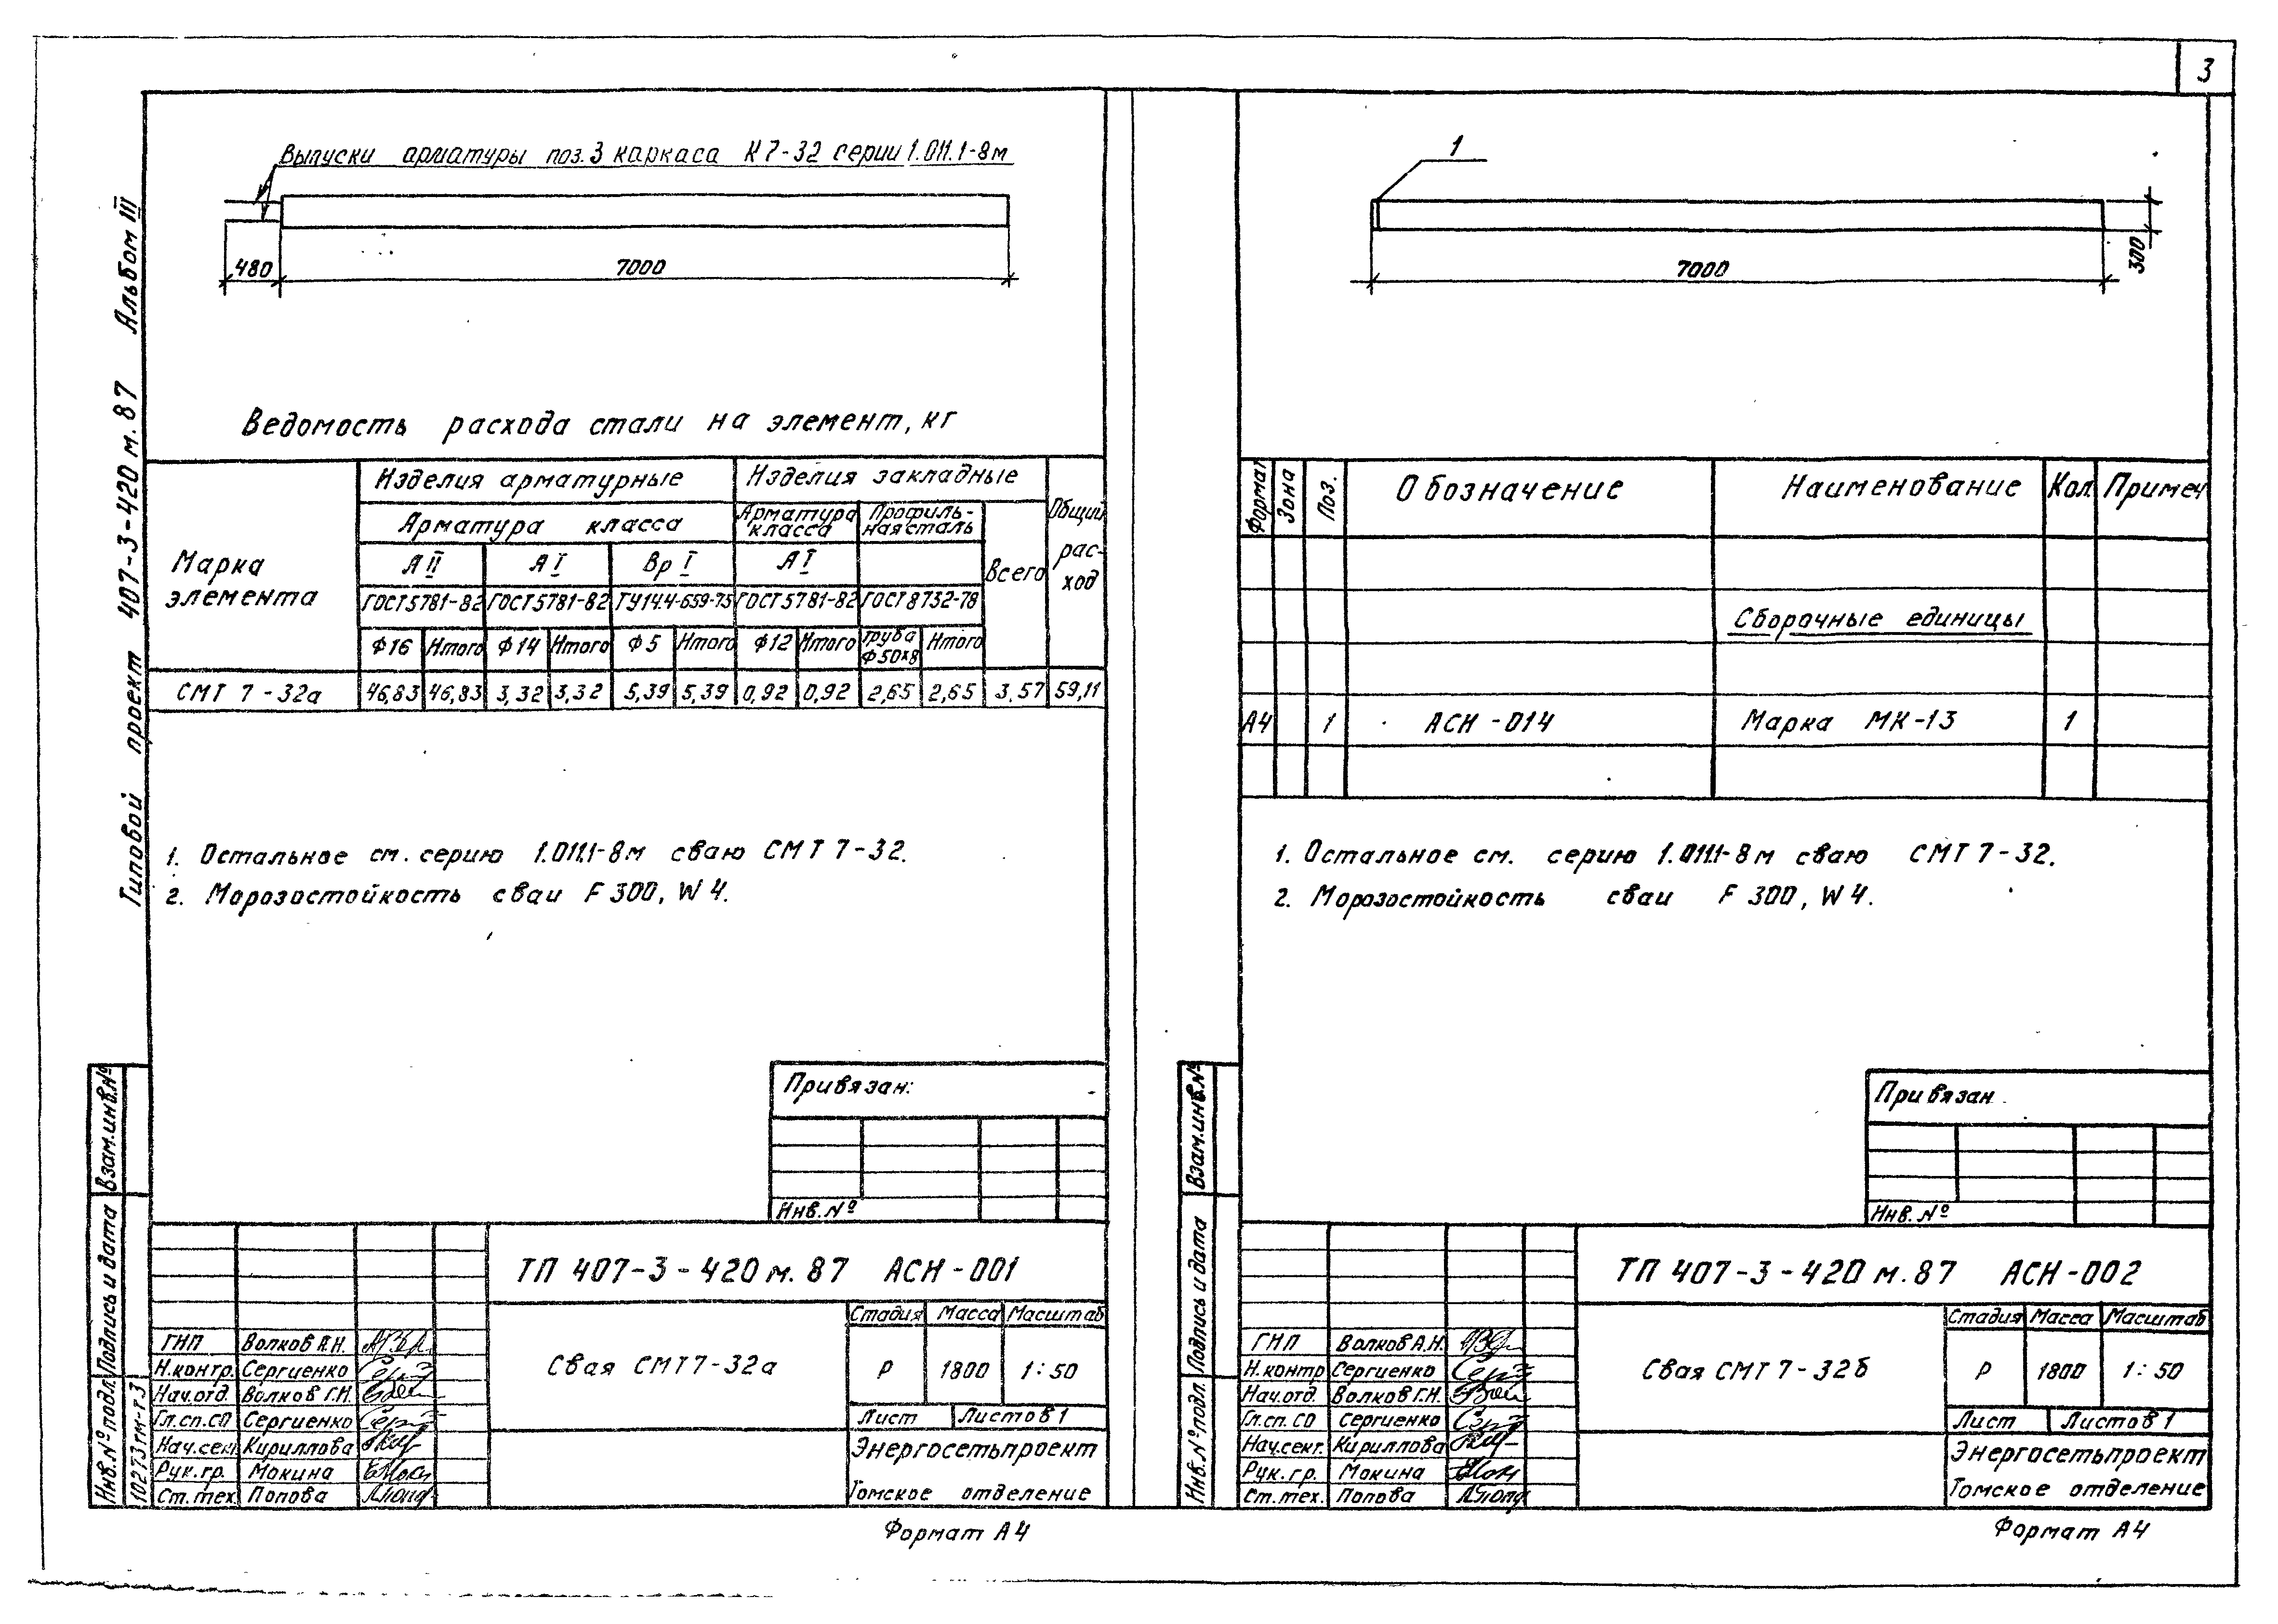 3
Типовой проект 407-3-420 м.87 Альбом III
Выпуски арматуры поз.3 каркаса К7-32 серии 1.011.1-8м
480
7000
Ведомость расхода стали на элемент, кг
Марка элемента
Изделия арматурные
Изделия закладные
Общий расход
Арматура класса
Арматура класса
Профиль-ная сталь
Всего
А II
А I
Вр I
А I
ГОСТ5781-82
ГОСТ5781-82
ТУ14.4-659-75
ГОСТ5781-82
ГОСТ8732-78
Ф16 Итого Ф14 Итого Ф5 Итого Ф12 Итого труба Ф50х8 Итого
СМТ 7-32а 46,83 46,83 3,32 3,32 5,39 5,39 0,92 0,92 2,65 2,65 3.57 59,11
1. Остальное см. серию 1.011.1-8м сваю СМТ 7-32.
2. Морозостойкость сваи F 300, W 4.
Привязан:
Инв.№
Взам.инв.№
Подпись и дата
Инв.№подл.
10273тм-т.3
ТП 407-3-420 м.87 АСИ-001
Свая СМТ7-32а
Стадия Масса Масштаб
Р 1800 1:50
Лист Листов 1
Энергосетьпроект
Томское отделение
ГИП Волков А.Н.
Н.контр. Сергиенко
Нач.отд. Волков Г.Н.
Гл.сп.СО Сергиенко
Нач.сек. Кириллова
Рук.гр. Мокина
Ст.тех. Попова
Формат А4
1
7000
300
Формат Зона Поз. Обозначение Наименование Кол Примеч
Сборочные единицы
А4 1 АСИ-014 Марка МК-13 1
1. Остальное см. серию 1.011.1-8м сваю СМТ 7-32.
2. Морозостойкость сваи F 300, W 4.
Привязан
Инв.№
Взам.инв.№
Подпись и дата
Инв.№подл.
ТП 407-3-420 м.87 АСИ-002
Свая СМТ 7-32б
Стадия Масса Масштаб
Р 1800 1:50
Лист Листов 1
Энергосетьпроект
Томское отделение
ГИП Волков А.Н.
Н.контр Сергиенко
Нач.отд. Волков Г.Н.
Гл.сп.СО Сергиенко
Нач.секг. Кириллова
Рук.гр. Мокина
Ст.тех. Попова
Формат А4